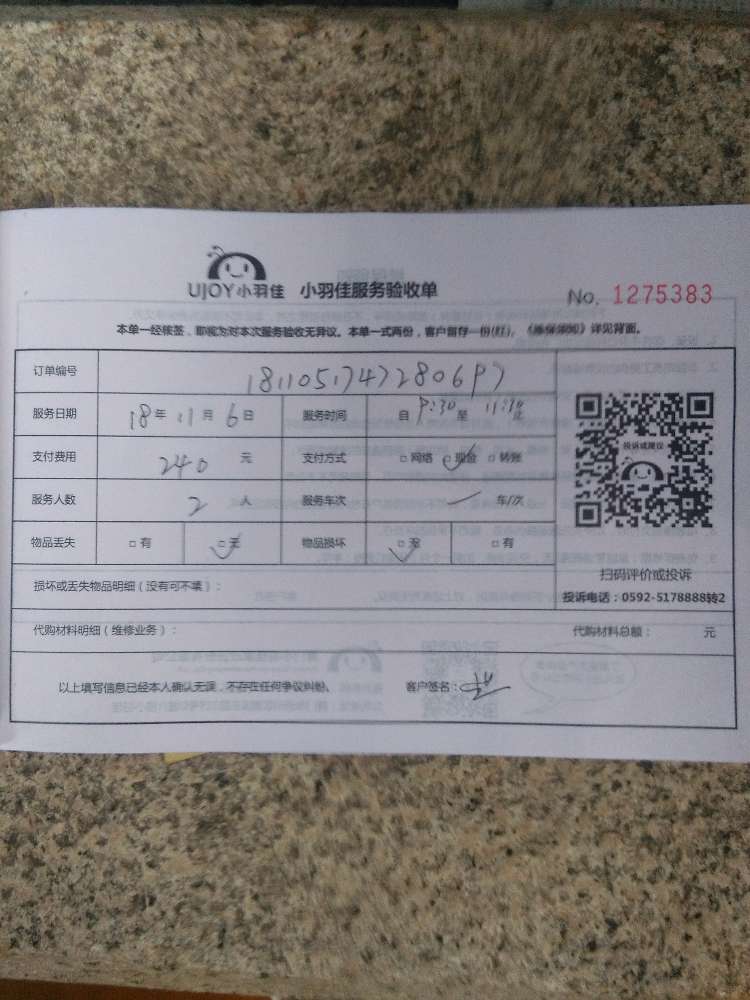 UJOY小羽佳 小羽佳服务验收单
No. 1275383
本单一经核签，即视为对本次服务验收无异议。本单一式两份，客户留存一份(红)，《维保须知》详见背面。
订单编号
服务日期 18年 11月 6日 服务时间 自 9:30 至
支付费用 240 元 支付方式 □网络 □现金 □转账
服务人数 2 人 服务车次 一 车/次
物品丢失 □有 □无 物品损坏 □无 □有
投诉或建议
扫码评价或投诉
投诉电话：0592-5178888转2
损坏或丢失物品明细（没有可不填）：
代购材料明细（维修业务）： 代购材料总额： 元
以上填写信息已经本人确认无误，不存在任何争议纠纷。 客户签名：